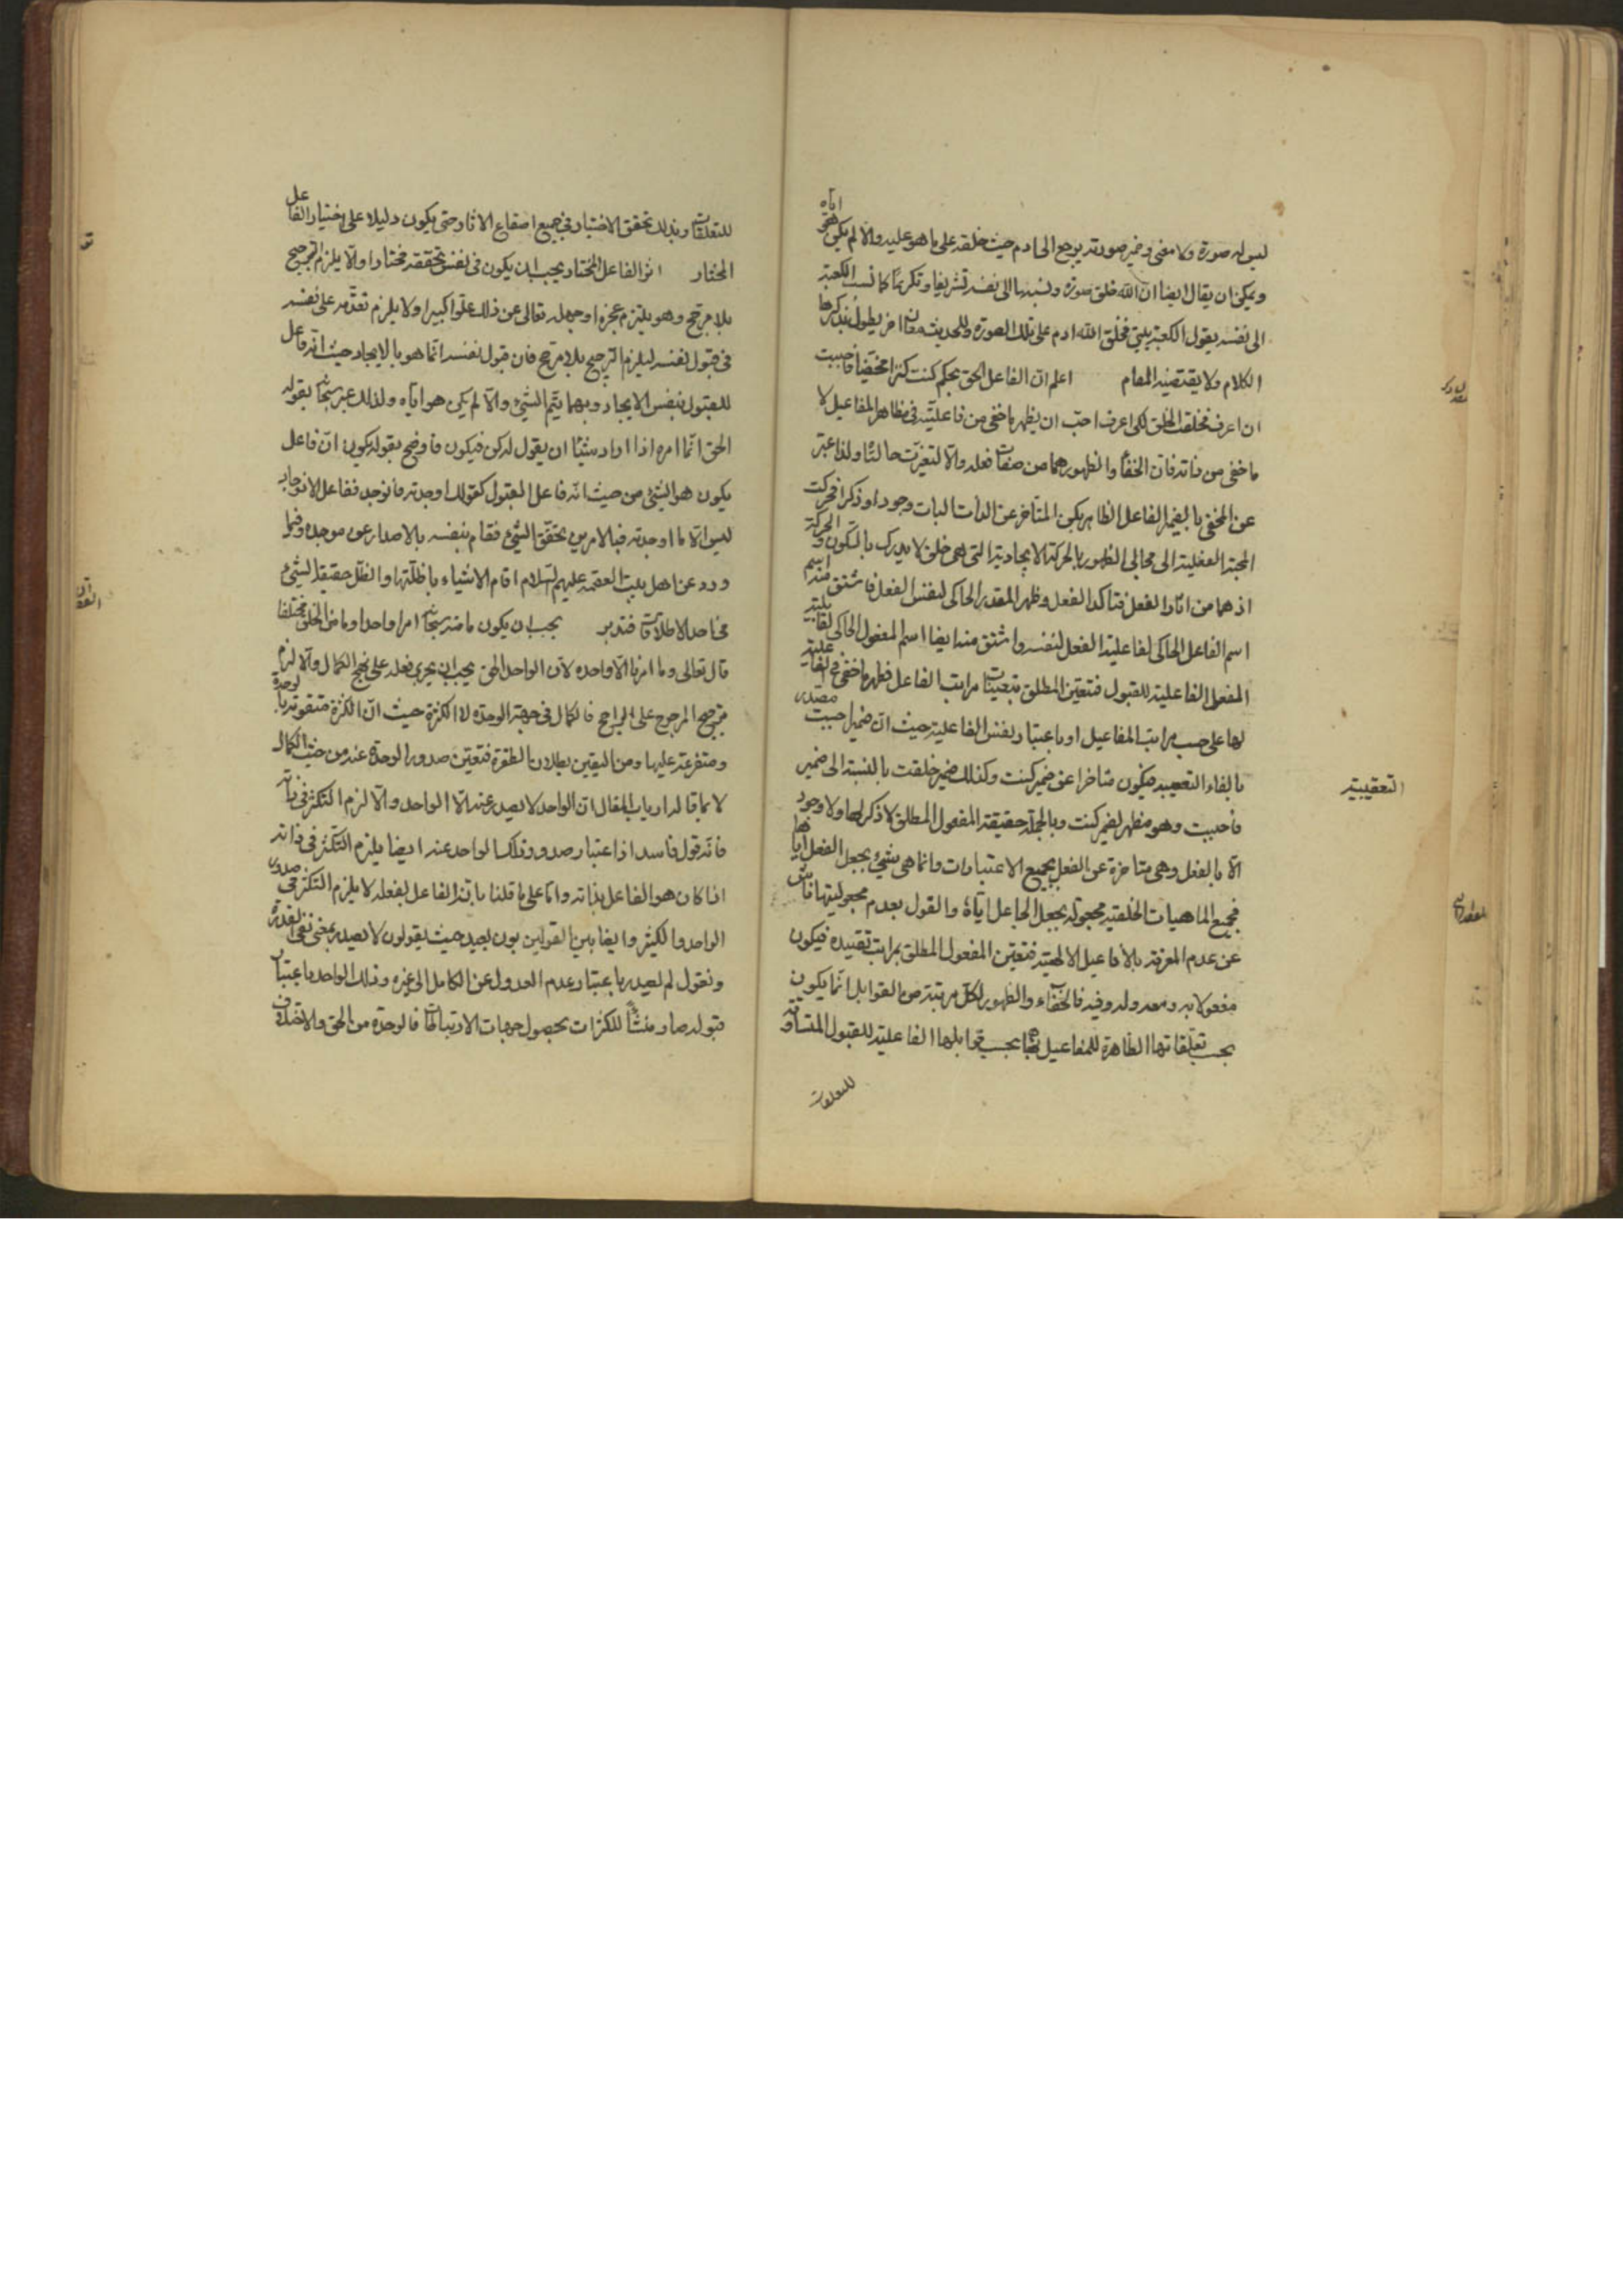 ليس له صورة ولا معنى وضمير صورته يرجع الى ادم حيث خلقه على ما هو عليه والا لم يكن هو اياه
ويمكن ان يقال ايضا ان الله خلق صورة ونسبها الى نفسه تشريفا وتكريما كما نسب الكعبة
الى نفسه يقول الكعبة بيتي فخلق الله ادم على تلك الصورة وللحديث معان اخر يطول بذكرها
الكلام ولا يقتضيه المقام اعلم ان الفاعل الحق بحكم كنت كنزا مخفيا فاحببت
ان اعرف فخلقت الخلق لكي اعرف احب ان يظهر ما خفي من فاعليته في مظاهر المفاعيل لا
ما خفي من ذاته فان الخفاء والظهور هما من صفات فعله والا لتغيرت حالتاه ولذا عبر
عن المخفي بالضمير الفاعل الظاهر بكن المتأخر عن الذات البات وجودا وذكرا فحركت
المحبة الفعلية الى مجالي الظهور بالحركة الايجادية التي هي خلق لا يدرك بالسكون والحركة
اذ هما من اثار الفعل فتأكد الفعل وظهر المصدر الحاكي لنفس الفعل فاشتق منه اسم
اسم الفاعل الحاكي لفاعلية الفعل لنفسه واشتق منه ايضا اسم المفعول الحاكي لقابلية
المفعول الفاعلية للقبول فتعين المطلق بتعينات مراتب الفاعل فظهر ما خفي في الفاعلية
لها على حسب مراتب المفاعيل او باعتبار نفس الفاعلية حيث ان ضمير احببت مصدر
بالفاء التعقيبية فيكون متاخرا عن ضمير كنت وكذلك ضمير خلقت بالنسبة الى ضمير
فاحببت وهو مظهر لضمير كنت وبالجملة حقيقة المفعول المطلق لا ذكر لها ولا وجود
الا بالفعل وهي متاخرة عن الفعل بجميع الاعتبارات وانما هي شيء بجعل الفعل اياها
فجميع الماهيات الخلقية مجعولة بجعل الجاعل اياه والقول بعدم مجعوليتها ناش
عن عدم المعرفة بالافاعيل الالهية فتعين المفعول المطلق بمراتب تقييده فيكون
مفعولا به ومعه وله وفيه فالخفاء والظهور لكل مرتبة من القوابل انما يكون
بحسب تعلقاتها الظاهرة للمفاعيل بحسب قوابلها الفاعلية للقبول المتساوقة
للتعلقات
التعقيبية
للتعلقات وبذلك تحقق الاختيار في جميع اصقاع الاثار حتى يكون دليلا على اختيار الفاعل
المختار اثر الفاعل المختار يجب ان يكون في نفس تحققه مختارا والا يلزم الترجيح
بلا مرجح وهو يلتزم عجزه او جهله تعالى عن ذلك علوا كبيرا ولا يلزم تقدمه على نفسه
في قبول نفسه ليلزم الترجيح بلا مرجح فان قبول نفسه انما هو بالايجاد حيث انه فاعل
للقبول بنفس الايجاد وبهما يتم الشيء والا لم يكن هو اياه ولذلك عبر سبحانه بقوله
الحق انما امره اذا اراد شيئا ان يقول له كن فيكون فاوضح بقوله يكون ان فاعل
يكون هو الشيء من حيث انه فاعل القبول كقولك اوجدته فانوجد ففاعل الانوجاد
ليس الا ما اوجدته فبالامرين تحقق الشيء فقام بنفسه بالاصدار عن موجده وفيما
ورد عن اهل بيت العصمة عليهم السلام اقام الاشياء باظلتها والظل حقيقة الشيء
في احد الاطلاقات فتدبر يجب ان يكون ما منه سبحانه امرا واحدا وما من الخلق مختلفا
قال تعالى وما امرنا الا واحدة لان الواحد الحق يجب ان يجري فعله على نهج الكمال والا لزم
ترجيح المرجوح على الراجح فالكمال في جهة الوحدة لا الكثرة حيث ان الكثرة متقومة بالوحدة
ومتفرعة عليها ومن اليقين بطلان الطفرة فتعين صدور الوحدة عنه من حيث الكمال
لا بما قاله ارباب المقال ان الواحد لا يصدر عنه الا الواحد والا لزم التكثر في ذاته
فانه قول فاسد اذ اعتبار صدور ذلك الواحد عنه ايضا يلزم التكثر في ذاته
اذا كان هو الفاعل بذاته واما على ما قلنا بانه الفاعل بفعله لا يلزم التكثر في صدور
الواحد والكثير وايضا بين القولين بون بعيد حيث يقولون لا يصدر بمعنى نفي القدرة
ونقول لم يصدر باعتبار عدم العدول عن الكامل الى غيره وذلك الواحد باعتبار
قبوله صار منشأ للكثرات بحصول جهات الارتباطات فالوحدة من الحق والاختلاف